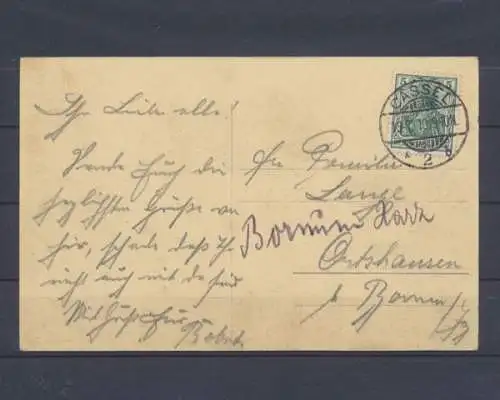 Ihr Lieben alle!
Sende Euch die
herzlichsten Grüße von
hier, schade daß Ihr
nicht auch mit da seid
Mit Gruß Euer
Robert
5 5
CASSEL
2
Familie
Lange
Bornum Harz
Ortshausen
b Bornum